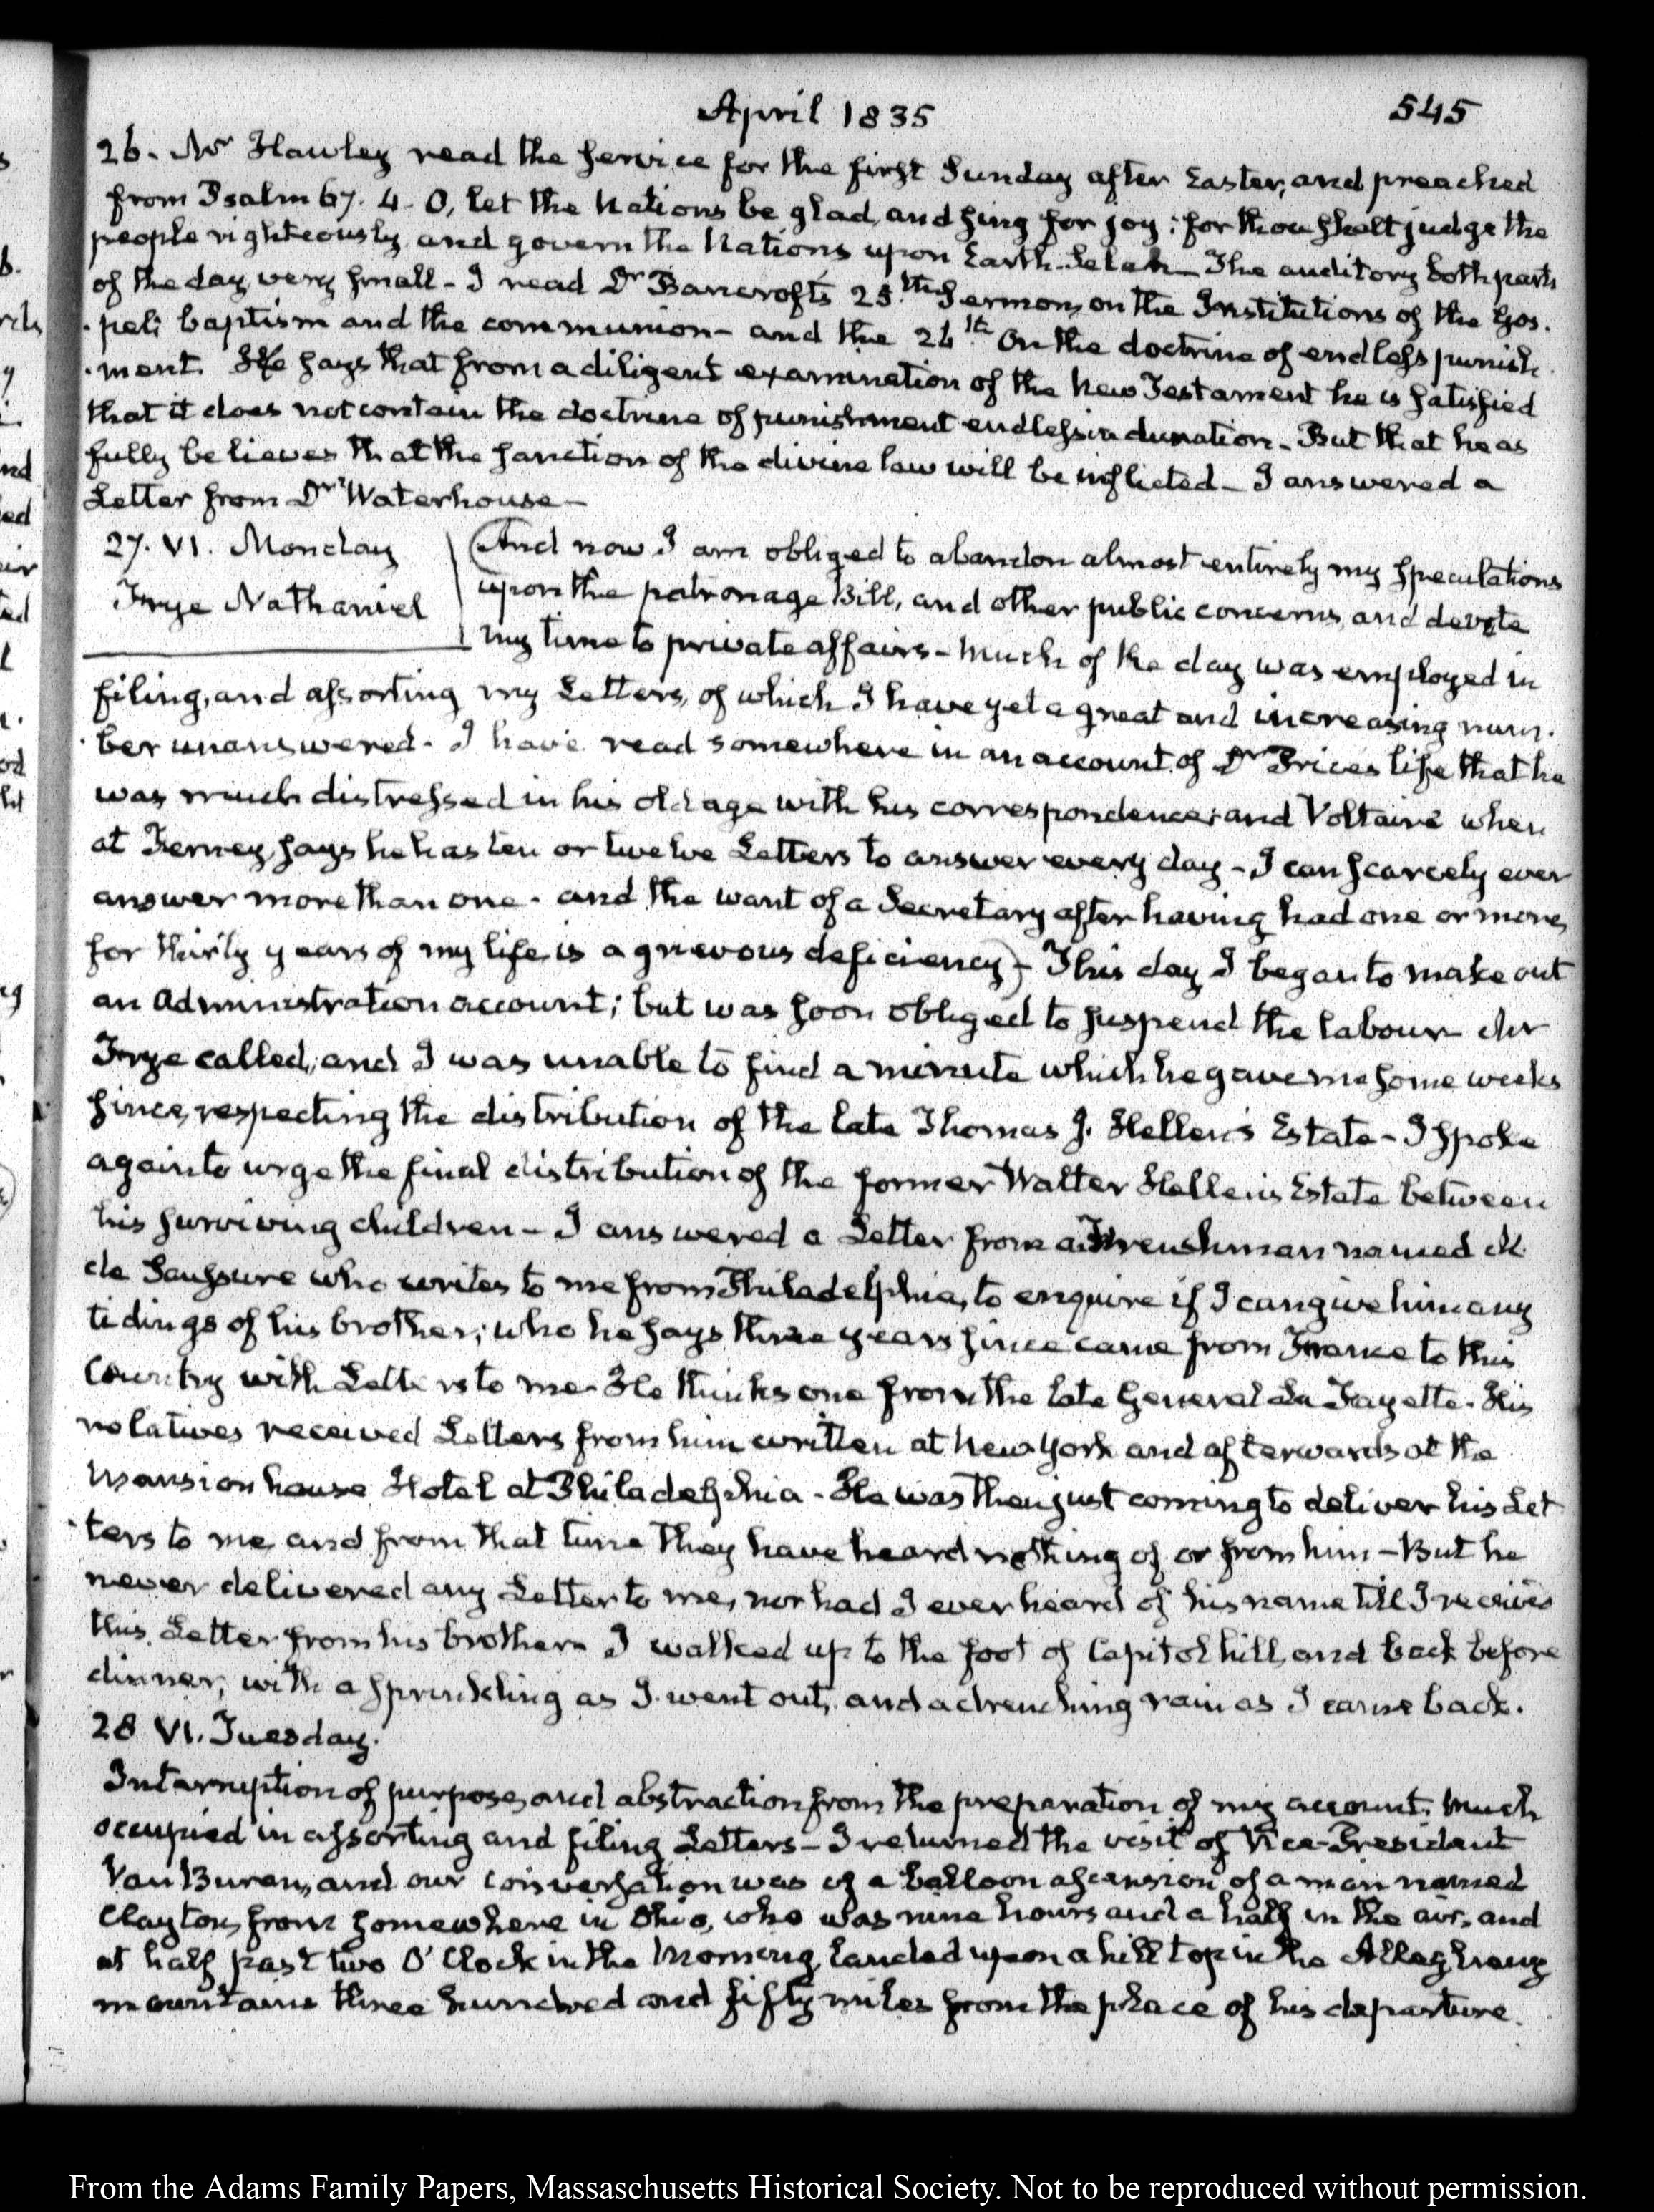 April 1835
545
26. Mr Hawley read the service for the first Sunday after Easter, and preached
from Psalm 67. 4. O, let the Nations be glad, and sing for joy; for thou shalt judge the
people righteously, and govern the Nations upon Earth. Selah — The auditory both parts
of the day very small - I read Dr Bancroft's 25.th Sermon, on the Institutions of the Gos.
·pel; baptism and the communion - and the 26.th On the doctrine of endless punish.
·ment. He says that from a diligent examination of the New Testament he is satisfied
that it does not contain the doctrine of punishment endless in duration - But that he as
fully believes that the sanction of the divine law will be inflicted - I answered a
Letter from Dr Waterhouse -
27. VI. Monday
Frye Nathaniel
(And now I am obliged to abandon almost entirely my speculations
upon the patronage Bill, and other public concerns, and devote
my time to private affairs - Much of the day was employed in
filing, and assorting my Letters, of which I have yet a great and increasing num.
·ber unanswered. I have read somewhere in an account of Dr Prices life that he
was much distressed in his old age with his correspondence; and Voltaire when
at Ferney, says he has ten or twelve Letters to answer every day - I can scarcely ever
answer more than one. and the want of a Secretary after having had one or more,
for thirty years of my life, is a grievous deficiency) - This day I began to make out
an Administration account; but was soon obliged to suspend the labour Mr
Frye called, and I was unable to find a minute which he gave me some weeks
since, respecting the distribution of the late Thomas J. Hellen's Estate - I spoke
again to urge the final distribution of the former Walter Hellen's Estate between
his surviving children - I answered a Letter from a Frenchman named M.
de Saussure who writes to me from Philadelphia, to enquire if I can give him any
tidings of his brother; who he says three years since came from France to this
Country with Letters to me - He thinks one from the late General La Fayette. His
relatives received Letters from him written at New York and afterwards at the
Mansion house Hotel at Philadelphia - He was then just coming to deliver his Let
·ters to me, and from that time they have heard nothing of or from him - But he
never delivered any Letter to me, nor had I ever heard of his name till I received
this Letter from his brother. I walked up to the foot of Capitol hill, and back before
dinner, with a sprinkling as I went out, and a drenching rain as I came back.
28 VI. Tuesday.
Interruption of purpose, and abstraction from the preparation of my account. Much
occupied in assorting and filing Letters - I returned the visit of Vice-President
Van Buren, and our conversation was of a balloon ascension of a man named
Clayton, from somewhere in Ohio, who was nine hours and a half in the air, and
at half past two O'Clock in the Morning, landed upon a hill top in the Alleghany
mountains three hundred and fifty miles from the place of his departure.
From the Adams Family Papers, Massachusetts Historical Society. Not to be reproduced without permission.